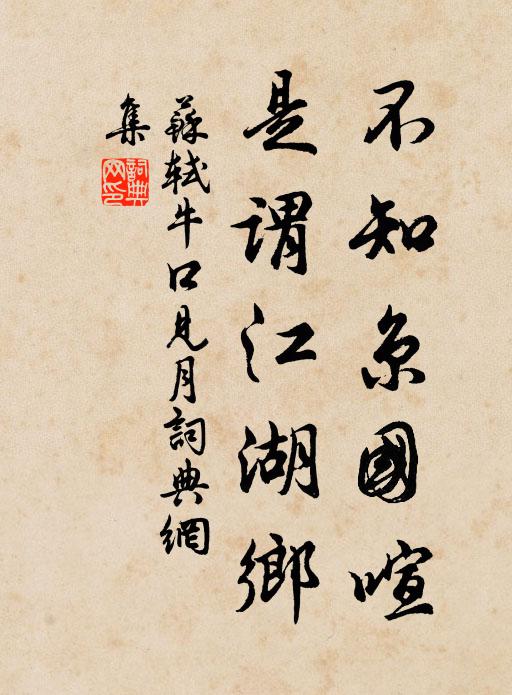 不知京國喧
是謂江湖鄉
蘇軾牛口見月詞典網
集
詞典
网印